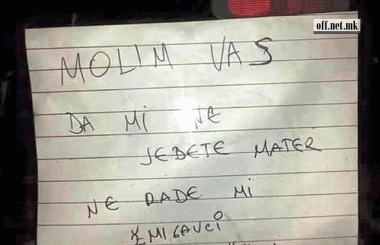 off.net.mk
MOLIM VAS
DA MI NE
JEBETE MATER
NE RADE MI
ŽMIGAVCI